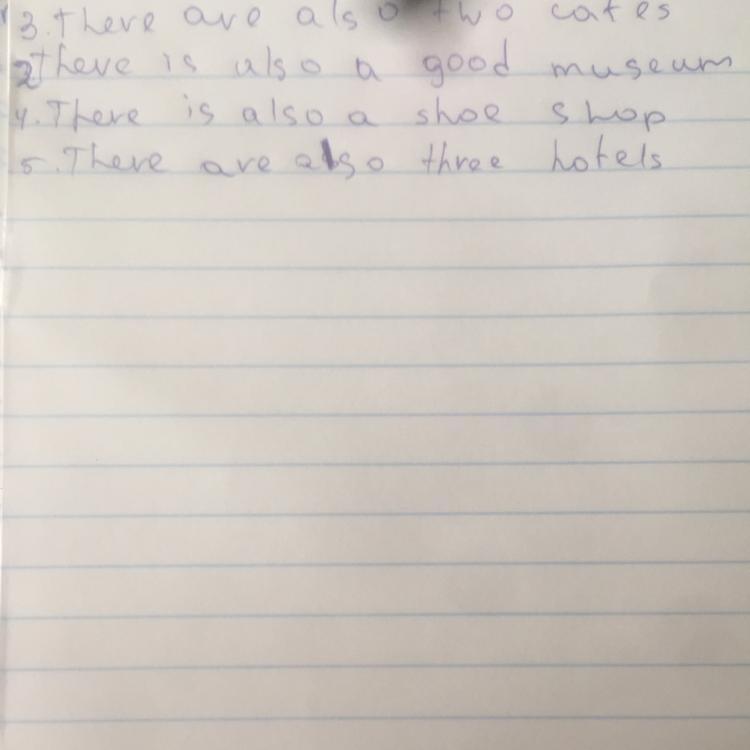 3. There are also two cafes
2 There is also a good museum
4. There is also a shoe shop
5. There are also three hotels